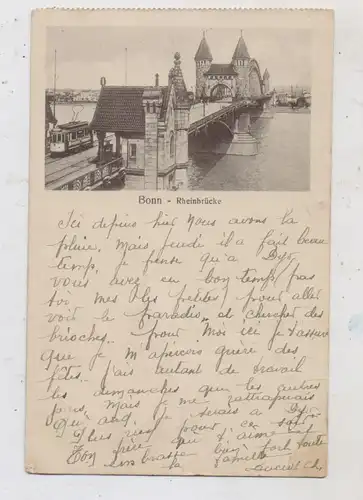 Bonn - Rheinbrücke
Ici depuis hier nous avons la
pluie, mais jeudi il a fait beau
temps, je pense qu'à
vous avez eu bon temps, pas
toi mes plus petites, pour aller
voir le paradis et chercher des
brioches.. pour moi ici je t'assure
que je m'aperçois guère des
fêtes.. j'ais autant de travail
les dimanches que les autres
jours, mais je me rattraperais
Quand je serais a
Plus rien pour ce soir
Ton frère qui t'aime et
embrasse bien fort toute
la famille